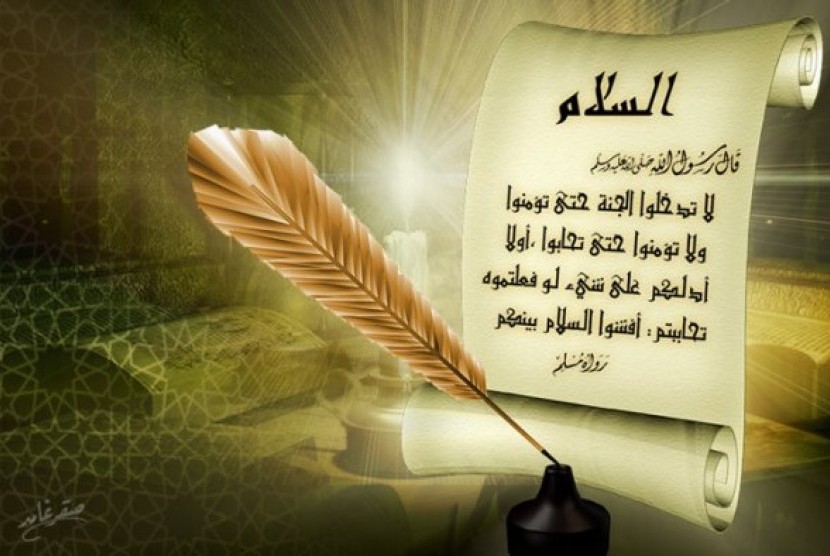 السلام
قال رسول الله صلى الله عليه وسلم
لا تدخلوا الجنة حتى تؤمنوا
ولا تؤمنوا حتى تحابوا ،أولا
أدلكم على شيء لو فعلتموه
تحاببتم : أفشوا السلام بينكم
رواه مسلم
صقر غامد